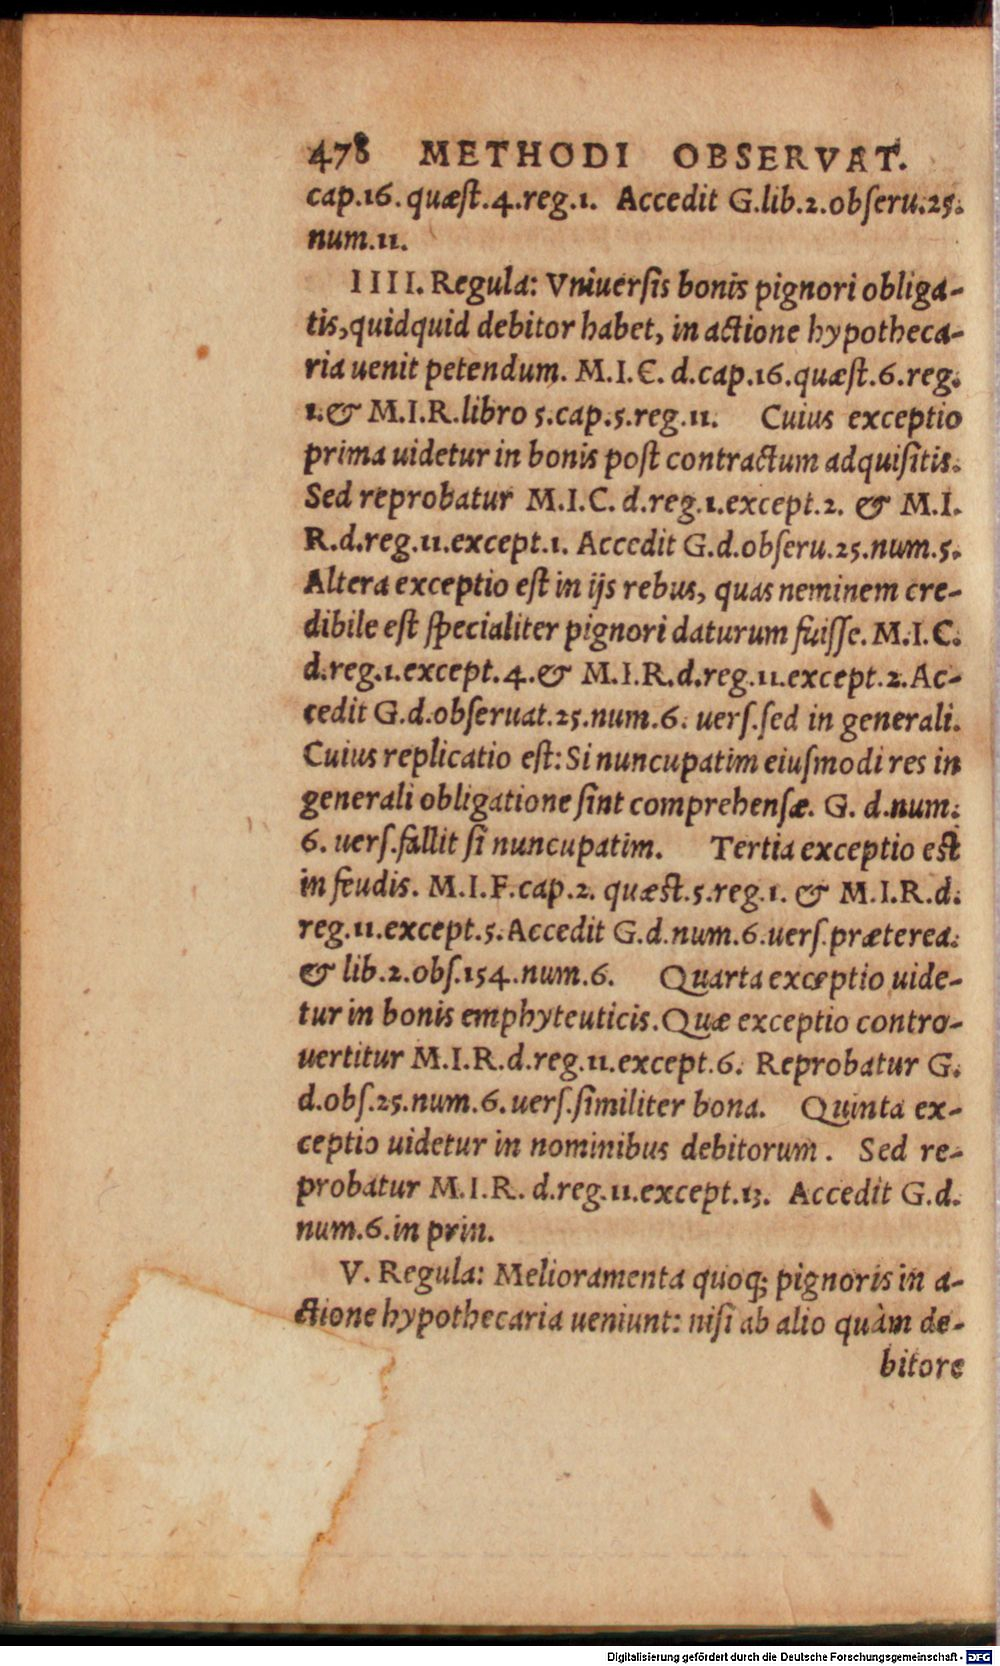 478 METHODI OBSERVAT.
cap.16. quæſt.4.reg.1. Accedit G.lib.2.obſeru.25.
num.11.
IIII. Regula: Vniuerſis bonis pignori obliga-
tis,quidquid debitor habet, in actione hypotheca-
ria uenit petendum. M.I.C. d.cap.16.quæſt.6.reg.
1.& M.I.R.libro 5.cap.5.reg.11. Cuius exceptio
prima uidetur in bonis poſt contractum adquiſitis.
Sed reprobatur M.I.C. d.reg.1.except.2. & M.I.
R.d.reg.11.except.1. Accedit G.d.obſeru.25.num.5.
Altera exceptio eſt in ijs rebus, quas neminem cre-
dibile eſt ſpecialiter pignori daturum fuiſſe. M.I.C.
d.reg.1.except.4.& M.I.R.d.reg.11.except.2.Ac-
cedit G.d.obſeruat.25.num.6. uerſ.ſed in generali.
Cuius replicatio eſt:Si nuncupatim eiuſmodi res in
generali obligatione ſint comprehenſæ. G. d.num.
6. uerſ.fallit ſi nuncupatim. Tertia exceptio eſt
in feudis. M.I.F.cap.2. quæſt.5.reg.1. & M.I.R.d.
reg.11.except.5.Accedit G.d.num.6.uerſ.præterea.
& lib.2.obſ.154.num.6. Quarta exceptio uide-
tur in bonis emphyteuticis.Quæ exceptio contro-
uertitur M.I.R.d.reg.11.except.6. Reprobatur G.
d.obſ.25.num.6.uerſ.ſimiliter bona. Quinta ex-
ceptio uidetur in nominibus debitorum. Sed re-
probatur M.I.R. d.reg.11.except.13. Accedit G.d.
num.6.in prin.
V. Regula: Melioramenta quoq; pignoris in a-
ctione hypothecaria ueniunt: niſi ab alio quàm de-
bitore
Digitalisierung gefördert durch die Deutsche Forschungsgemeinschaft - DFG